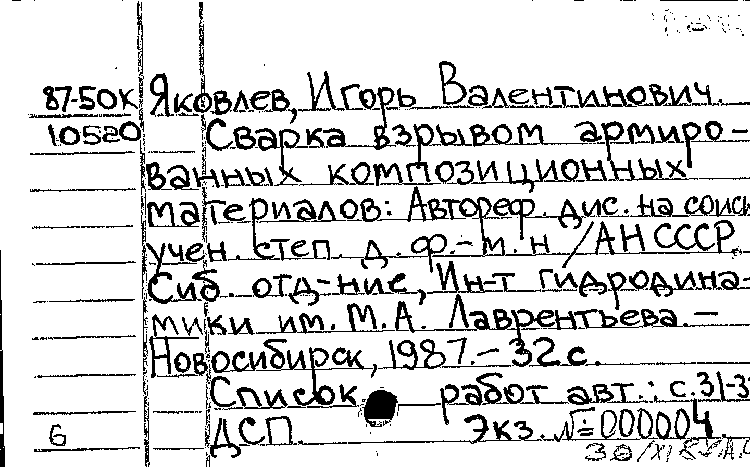 87-50К Яковлев, Игорь Валентинович.
10520 Сварка взрывом армиро-
ванных композиционных
материалов: Автореф. дис. на соиск
учен. степ. д. ф.-м. н /АН СССР.
Сиб. отд-ние, Ин-т гидродина-
мики им. М.А. Лаврентьева. –
Новосибирск, 1987. – 32 с.
Список работ авт.: с. 31-3
6 ДСП. Экз. № 000004.